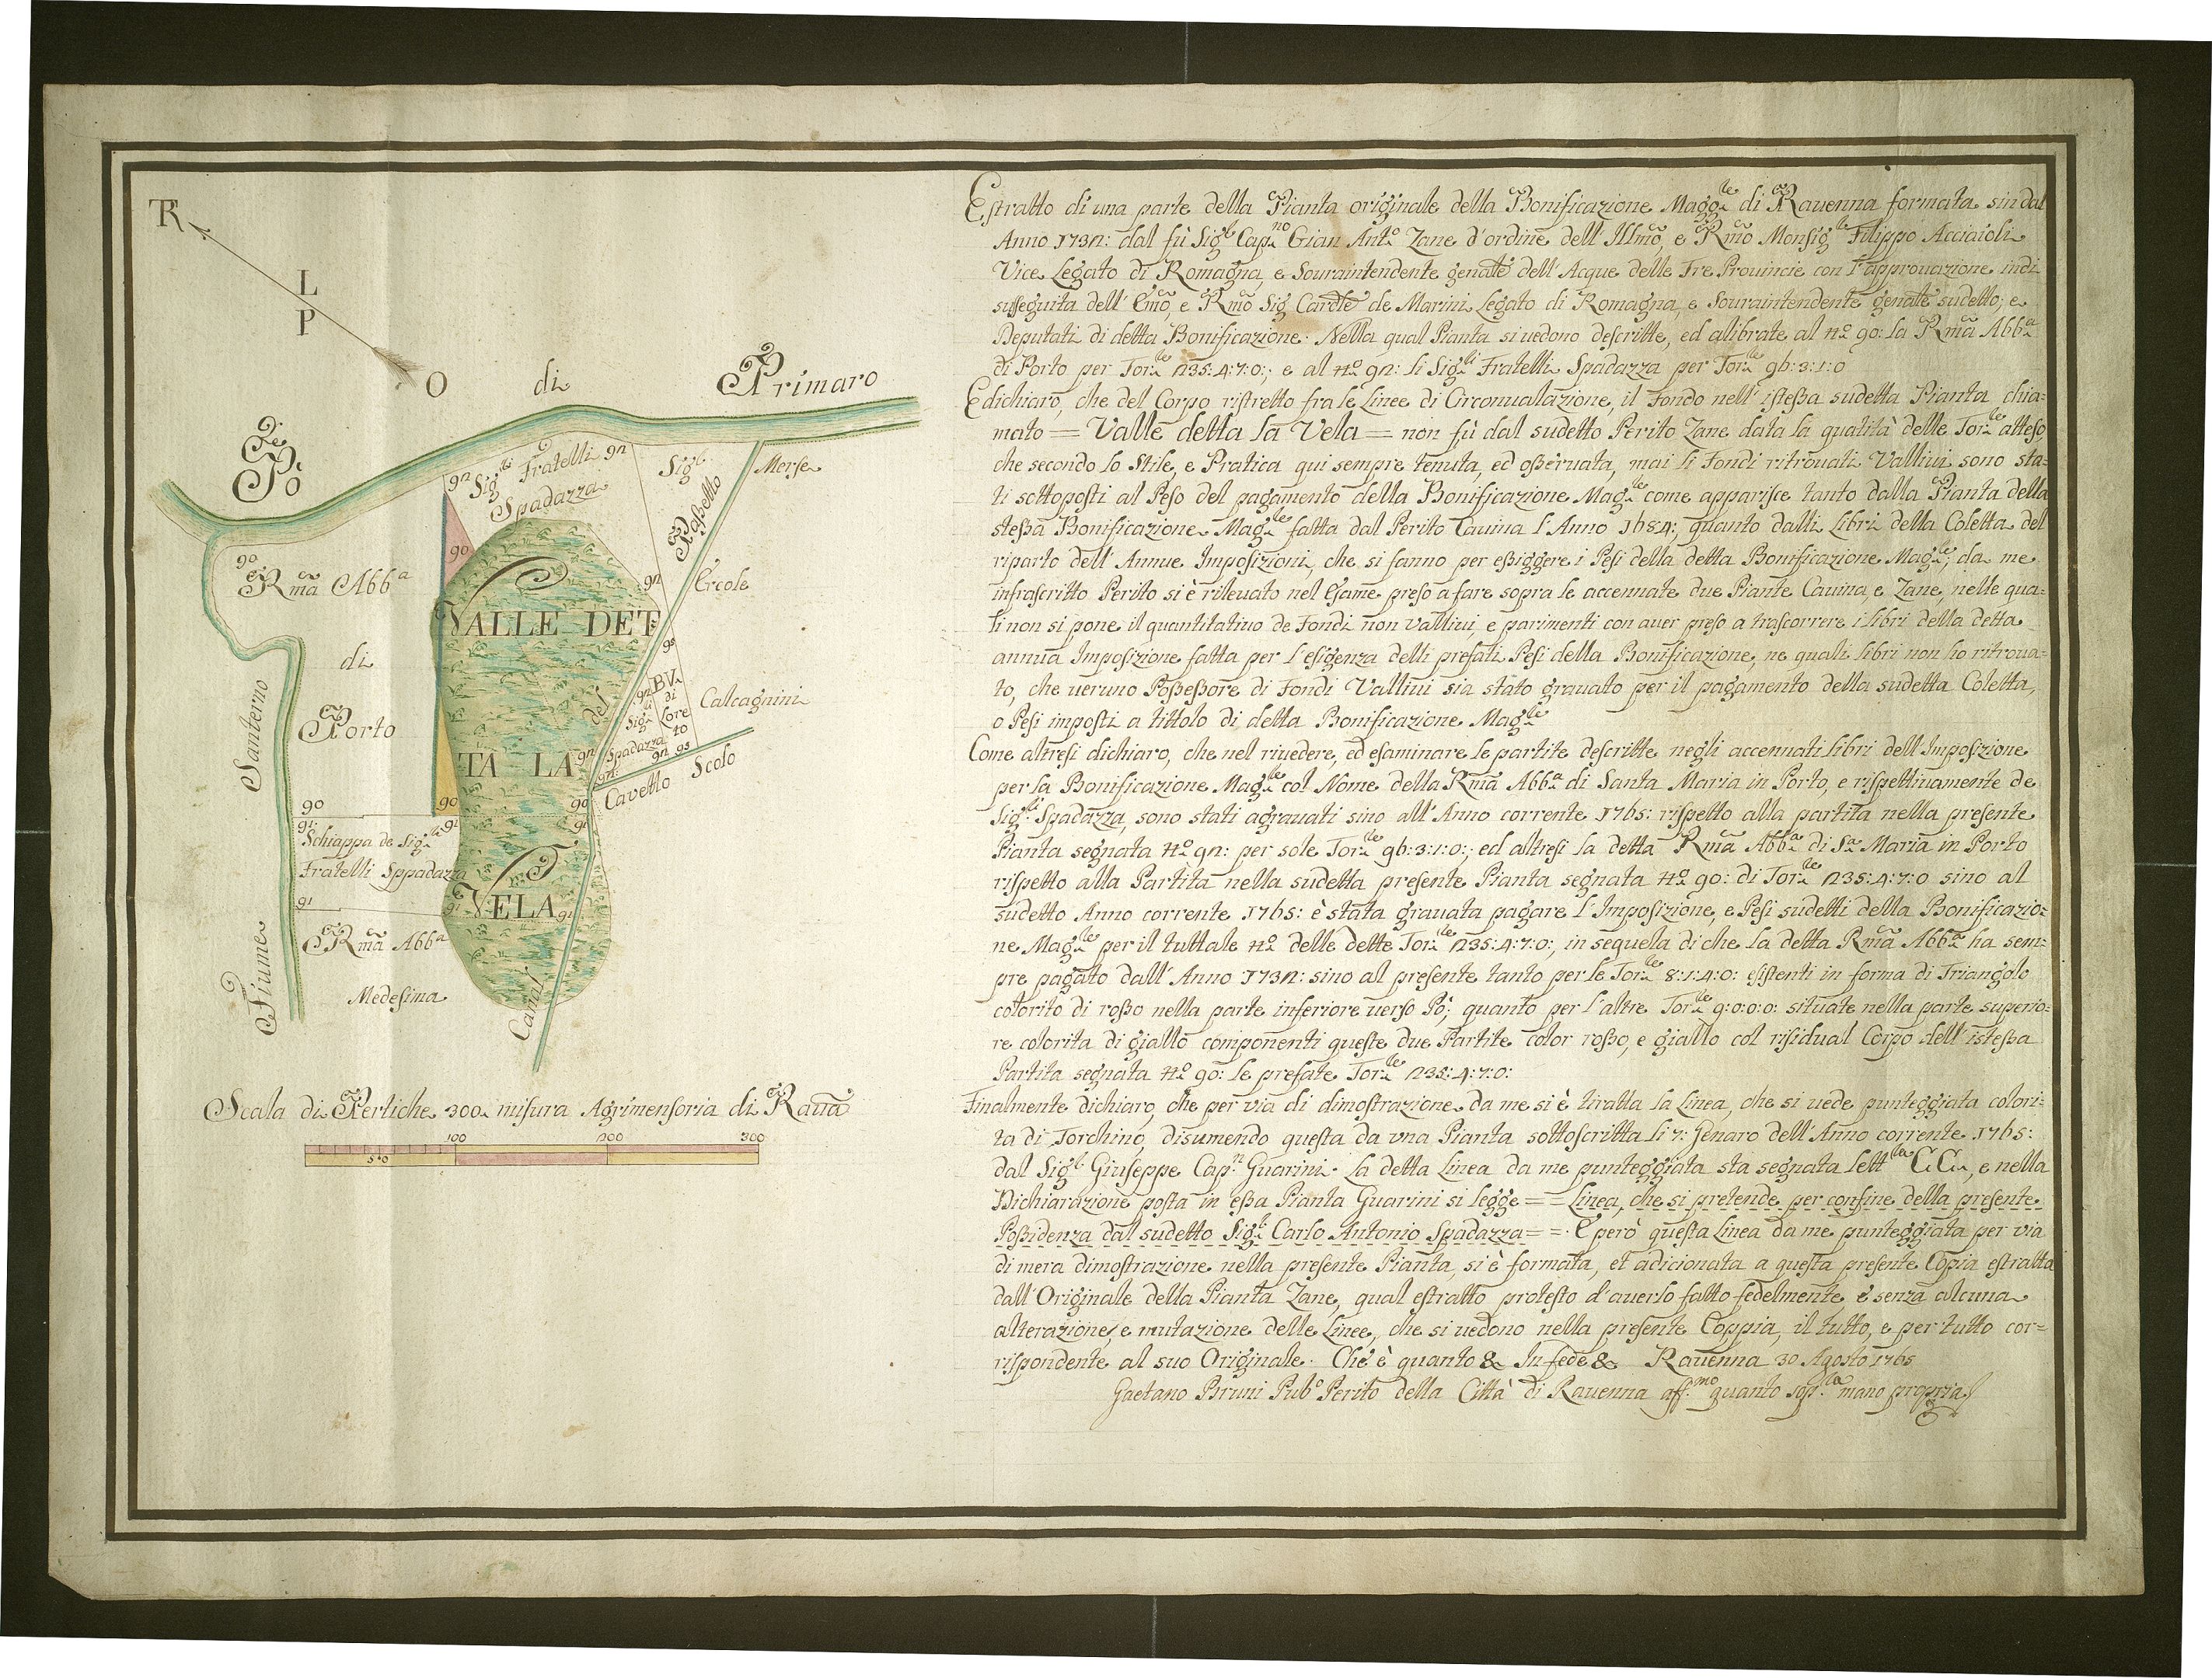 TR
L
P
O di Primaro
Po
92 Sig.li Fratelli 92
Spadazza
Sig.r
Merse
Passetto
90
90
Rma Abb.a
92
Ercole
VALLE DET
di
95
92 B.V.
di
Calcagnini
Sig.li Lore
to
del
Porto
Santerno
Spadazza
TA LA
92
92 95
92
Scolo
Cavetto
90
90
90
91
91
91
Schiappa de Sig.li
Fratelli Sppadazza
91
91
VELA
91
Rma Abb.a
Fiume
Medesima
Canal
Scala di Pertiche 300 misura Agrimensoria di Raua
100 200 300
50
Estratto di una parte della Pianta originale della Bonificazione Magg.le di Rauenna formata sin dal
Anno 1732: dal fù Sig.r Cap.no Gian Ant.o Zane d'ordine dell'Illmo, e Rmo Monsig.r Filippo Acciaioli
Vice Legato di Romagna, e Souraintendente genale dell'Acque delle Tre Prouincie con l'approuazione indi
susseguita dell'Emo, e Rmo Sig Cardle de Marini Legato di Romagna, e Souraintendente genale sudetto, e
Deputati di detta Bonificazione. Nella qual Pianta si uedono descritte, ed alibrate al N.o 90: la Rma Abb.a
di Porto per Tor.le 235:4:7:0:, e al N.o 92: li Sig.li Fratelli Spadazza per Tor.le 96:3:1:0
E dichiaro, che del Corpo ristretto fra le Linee di Circonualazione, il Fondo nell'istessa sudetta Pianta chia=
mato = Valle detta la Vela = non fù dal sudetto Perito Zane data la quatità delle Tor.le atteso,
che secondo lo Stile, e Pratica qui sempre tenuta, ed osseruata, mai li Fondi ritrouati Valliui sono sta=
ti sottoposti al Peso del pagamento della Bonificazione Mag.le come apparisce tanto dalla Pianta della
stessa Bonificazione Mag.le fatta dal Perito Cauina l'Anno 1684:, quanto dalli Libri della Coletta del
riparto dell'Annue Imposizioni, che si fanno per essiggere i Pesi della detta Bonificazione Mag.le; da me
infrascritto Perito si è rileuato nel Esame preso a fare sopra le accennate due Piante Cauina, e Zane, nelle qua=
li non si pone il quantitatiuo de Fondi non valliui, e parimenti con auer preso a trascorrere i libri della detta
annua Imposizione fatta per l'esigenza delli prefati Pesi della Bonificazione, ne quali libri non hò ritroua=
to, che ueruno Possessore di Fondi Valliui sia stato grauato per il pagamento della sudetta Coletta,
o Pesi imposti a tittolo di detta Bonificazione Mag.le
Come altresi dichiaro, che nel riuedere, ed esaminare le partite descritte negli accennati libri dell'Imposizione
per la Bonificazione Mag.le col Nome della Rma Abb.a di Santa Maria in Porto, e rispettiuamente de
Sig.li Spadazza, sono stati agrauati sino all'Anno corrente 1765: rispetto alla partita nella presente
Pianta segnata N.o 92: per sole Tor.le 96:3:1:0:, ed altresi la detta Rma Abb.a di S.a Maria in Porto
rispetto alla Partita nella sudetta presente Pianta segnata N.o 90: di Tor.le 235:4:7:0 sino al
sudetto Anno corrente 1765: è stata grauata pagare l'Imposizione, e Pesi sudetti della Bonificazio=
ne Mag.le per il tuttale N.o delle dette Tor.le 235:4:7:0:, in sequela di che la detta Rma Abb.a ha sem=
pre pagato dall'Anno 1732: sino al presente tanto per le Tor.le 8:1:4:0: esistenti in forma di Triangolo
colorito di rosso nella parte inferiore uerso Pò; quanto per l'altre Tor.le 9:0:0:0: situate nella parte superio=
re colorita di giallo componenti queste due Partite color rosso, e giallo col risidual Corpo dell'istessa
Partita segnata N.o 90: le prefate Tor.le 235:4:7:0:
Finalmente dichiaro, che per via di dimostrazione da me si è tiratta la Linea, che si uede punteggiata colori=
ta di Torchino, disumendo questa da vna Pianta sottoscritta li 7: Genaro dell'Anno corrente 1765:
dal Sig.r Giuseppe Cap.n Guarini. La detta Linea da me punteggiata sta segnata Lett.ra CC, e nella
Dichiarazione posta in essa Pianta Guarini si legge = = Linea, che si pretende per confine della presente
Possidenza dal sudetto Sig.r Carlo Antonio Spadazza = = . E però questa Linea da me punteggiata per via
di mera dimostrazione nella presente Pianta, si è formata, et adicionata a questa presente Copia estratta
dall'Originale della Pianta Zane, qual estratto protesto d'auerlo fatto fedelmente, e senza alcuna
alterazione, e mutazione delle Linee, che si uedono nella presente Coppia, il tutto, e per tutto cor=
rispondente al suo Originale. Che è quanto & In fede & Rauenna 30 Agosto 1765
Gaetano Bruni Pub.o Perito della Città di Rauenna aff.mo quanto sop.a mano propria